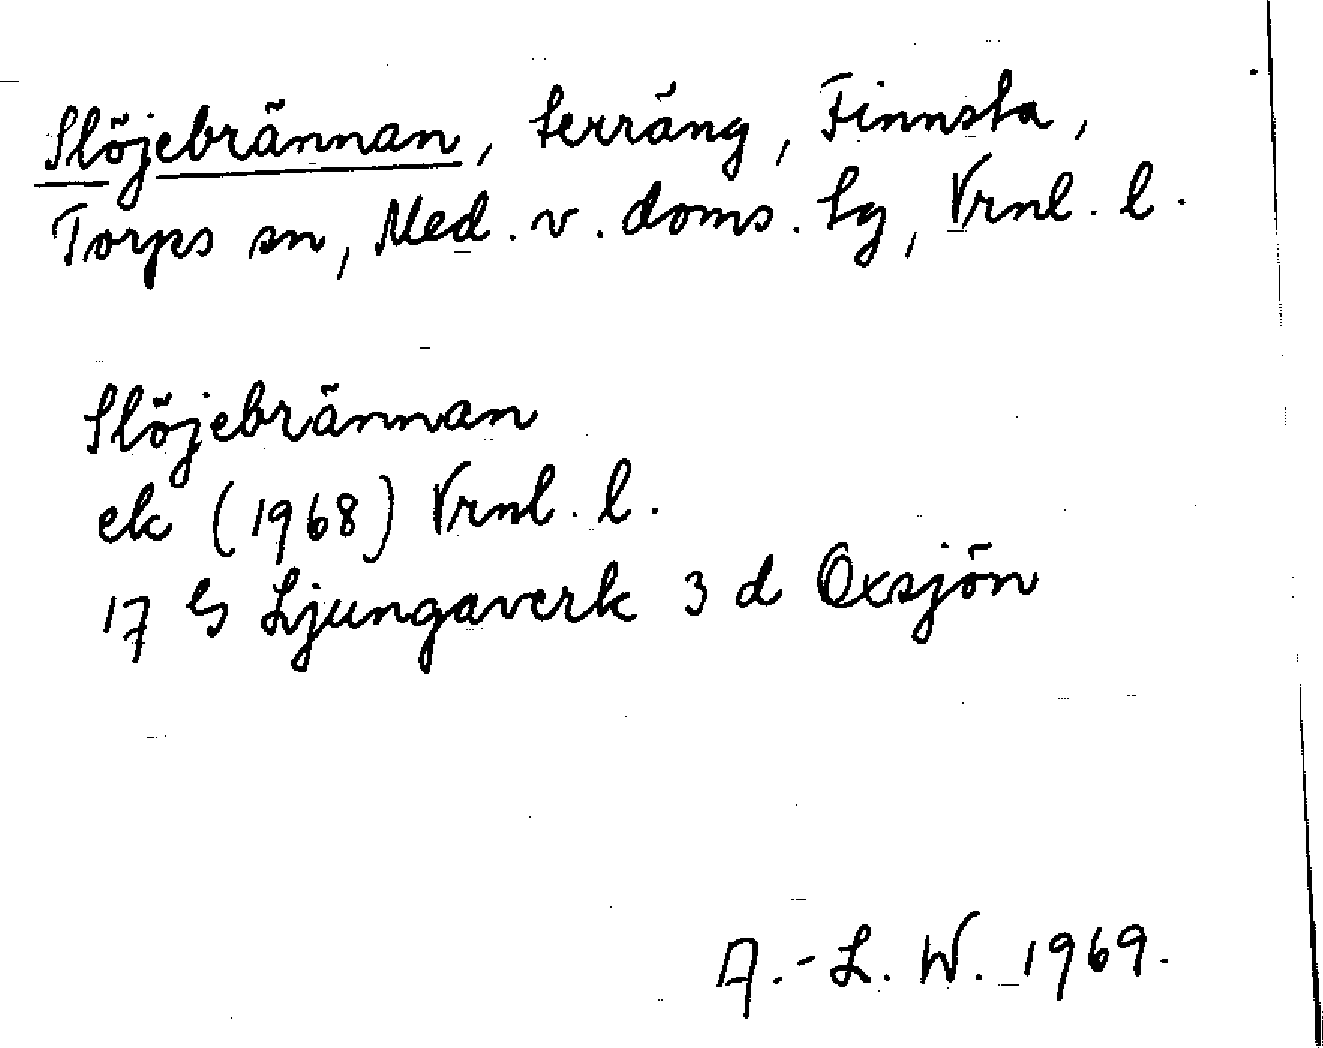 Slöjebrännan, terräng, Finnsta,
Torps sn, Med. v. doms. tg, Vrnl. l.
Slöjebrännan
ek (1968) Vrnl. l.
17 G Ljungaverk 3 d Oxsjön
A.-L. W. 1969.